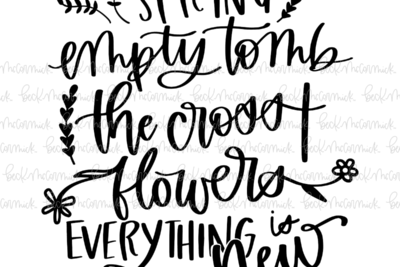 SPRING
empty tomb
the cross
flowers
EVERYTHING is
new